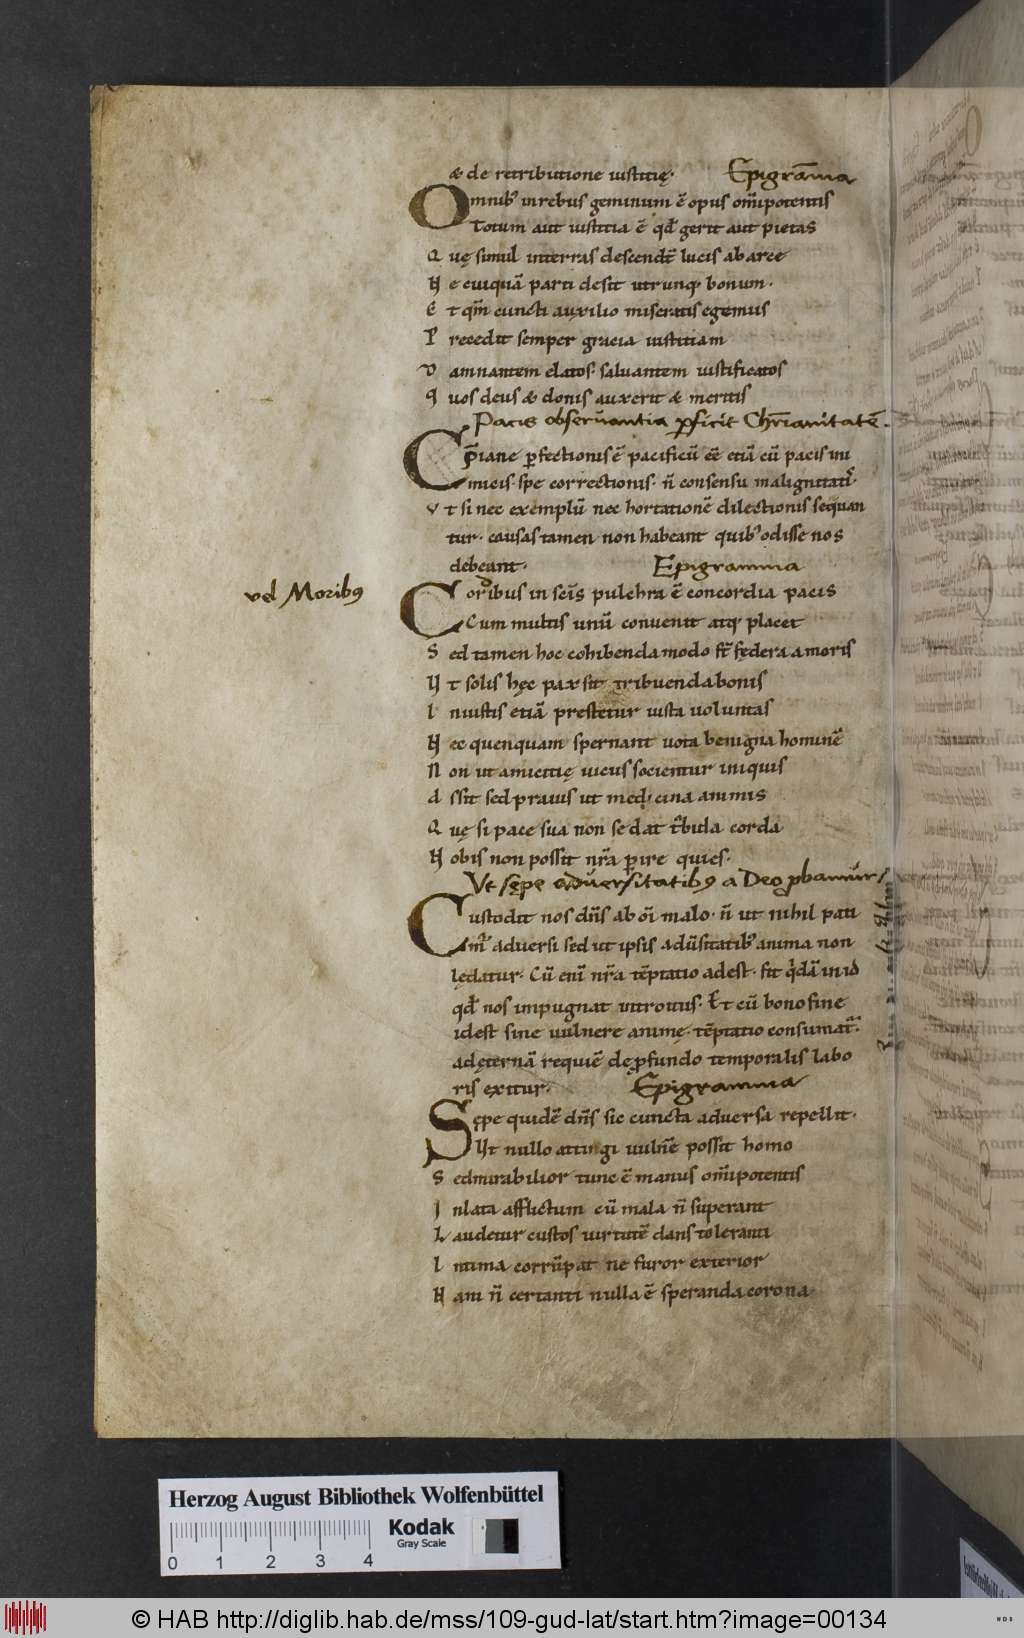 & de retributione iustitię. Epigrāma
Omnib; in rebus geminum ē opus om̄ipotentis
Totum aut iustitia ē qđ gerit aut pietas
Quę simul interras descendt̄ lucis ab arce
Ne cuiquā parti desit utrunq; bonum.
Et qm̄ cuncti auxilio miserantis egemus
Precedit semper gracia iustitiam
Damnantem elatos. saluantem iustificatos
Quos deus & donis auxerit & meritis
Pacis obseruantia ꝑficit Chr̄ianitatē.
Cp̄iane ꝑfectionis ē pacificū eē etiā cū pacis ini
micis. spe correctionis. n̄ consensu malignitatis.
Vt si nec exemplū nec hortationē dilectionis sequan
tur. causas tamen non habeant quib; odisse nos
debeant. Epigramma
vel Moribꝰ
Coribus in scīs pulchra ē concordia pacis
Cum multis unū conuenit atq; placet
Sed tamen hoc cohibenda modo st̄ fędera amoris
Ut solis hęc pax sit tribuenda bonis
Iniustis etiā prestetur iusta uoluntas
Nec quenquam spernant uota benigna hominē
Non ut amicitię uicus socientur iniquis
Assit sed prauis ut medicina animis
Quę si pace sua non sedat t̄bida corda
Nobis non possit nr̄a ꝑire quies.
Vt sępe aduersitatibꝰ a Deo ꝓbamur
Custodit nos dn̄s ab oī malo. n̄ ut nihil pati
am̄ aduersi sed ut ipsis adūsitatib; anima non
lędatur. Cū enī nr̄a tēptatio adest. fit qdā in id
qđ nos impugnat introitus. Et cū bono fine
idest sine uulnere animę. tēptatio consumat̄.
adęternā requiē de ꝓfundo temporalis labo
ris exitur. Epigramma
Sępe quidē dn̄s sic cuncta aduersa repellit.
Ut nullo attingi uuln̄e possit homo
Sed mirabilior tunc ē manus om̄ipotentis
Inlata afflictum cū mala n̄ superant
Laudetur custos uirtutē dans toleranti
Intima corrūpat ne furor exterior
Nam n̄ certanti nulla ē speranda corona.
Herzog August Bibliothek Wolfenbüttel
Kodak
Gray Scale
0 1 2 3 4
© HAB http://diglib.hab.de/mss/109-gud-lat/start.htm?image=00134